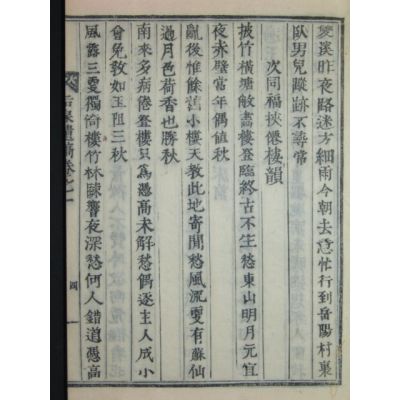 雙溪昨夜路迷方細雨今朝去意忙行到岳陽村裏
臥男兒蹤跡不尋常
次同福挾僊樓韻
披竹橫塘敞畵樓登臨終古不生愁東山明月元宜
夜赤壁當年偶値秋
亂後惟餘舊小樓天敎此地寄閒愁風流更有蘇仙
過月色荷香也勝秋
南來多病倦登樓只爲憑高未解愁偶逐主人成小
會免敎如玉阻三秋
風露三更獨倚樓竹林踈響夜深愁何人錯道憑高
遺稿卷之一